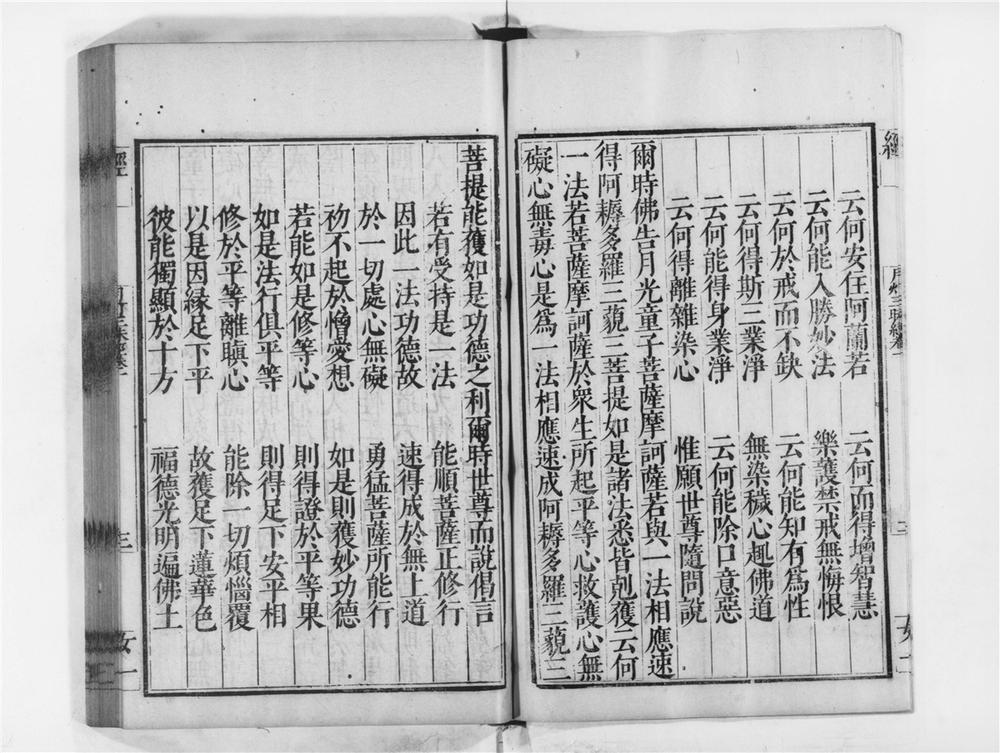 云何安住阿蘭若　云何而得增智慧
云何能入勝妙法　樂護禁戒無悔恨
云何於戒而不缺　云何能知有為性
云何得斯三業淨　無染穢心趣佛道
云何能得身業淨　云何能除口意惡
云何得離雜染心　惟願世尊隨問說
爾時佛告月光童子菩薩摩訶薩若與一法相應速
得阿耨多羅三藐三菩提如是諸法悉皆剋獲云何
一法若菩薩摩訶薩於衆生所起平等心救護心無
礙心無毒心是為一法相應速成阿耨多羅三藐三
菩提能獲如是功德之利爾時世尊而說偈言
若有受持是一法　能順菩薩正修行
因此一法功德故　速得成於無上道
於一切處心無礙　勇猛菩薩所能行
初不起於憎愛想　如是則獲妙功德
若能如是修等心　則得證於平等果
如是法行俱平等　則得足下安平相
修於平等離瞋心　能除一切煩惱覆
以是因緣足下平　故獲足下蓮華色
彼能獨顯於十方　福德光明遍佛土
經